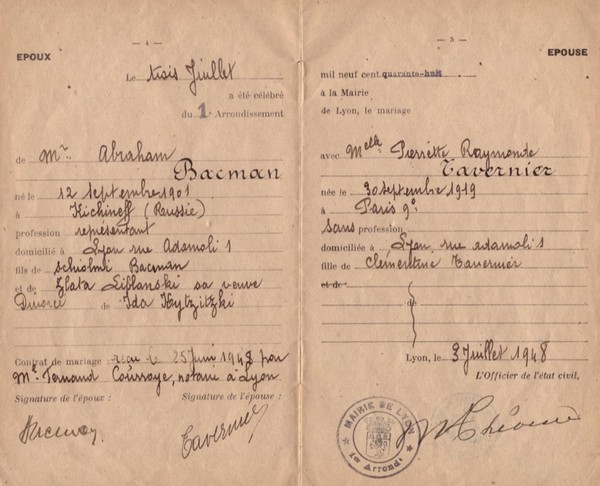 — 4 —
EPOUX
Le trois Juillet
a été célébré
du 1er Arrondissement
de Mr. Abraham
Bacman
né le 12 septembre 1901
à Kichineff (Russie)
profession représentant
domicilié à Lyon rue Adamoli 1
fils de schiolmi Bacman
et de Zlata Liflanski sa veuve
Divorcé de Ida
Contrat de mariage reçu le 25 juin 1948 par
Me Fernand Coursaye, notaire à Lyon
Signature de l'époux : Signature de l'épouse :
Bacman Tavernier
— 5 —
EPOUSE
mil neuf cent quarante-huit
à la Mairie
de Lyon, le mariage
avec Melle Pierrette Raymonde
Tavernier
née le 30 septembre 1919
à Paris 9e
sans profession
domiciliée à Lyon, rue adamoli 1
fille de Clémentine Tavernier
et de
de
Lyon, le 3 Juillet 1948
L'Officier de l'état civil,
MAIRIE DE LYON
1er Arrondt